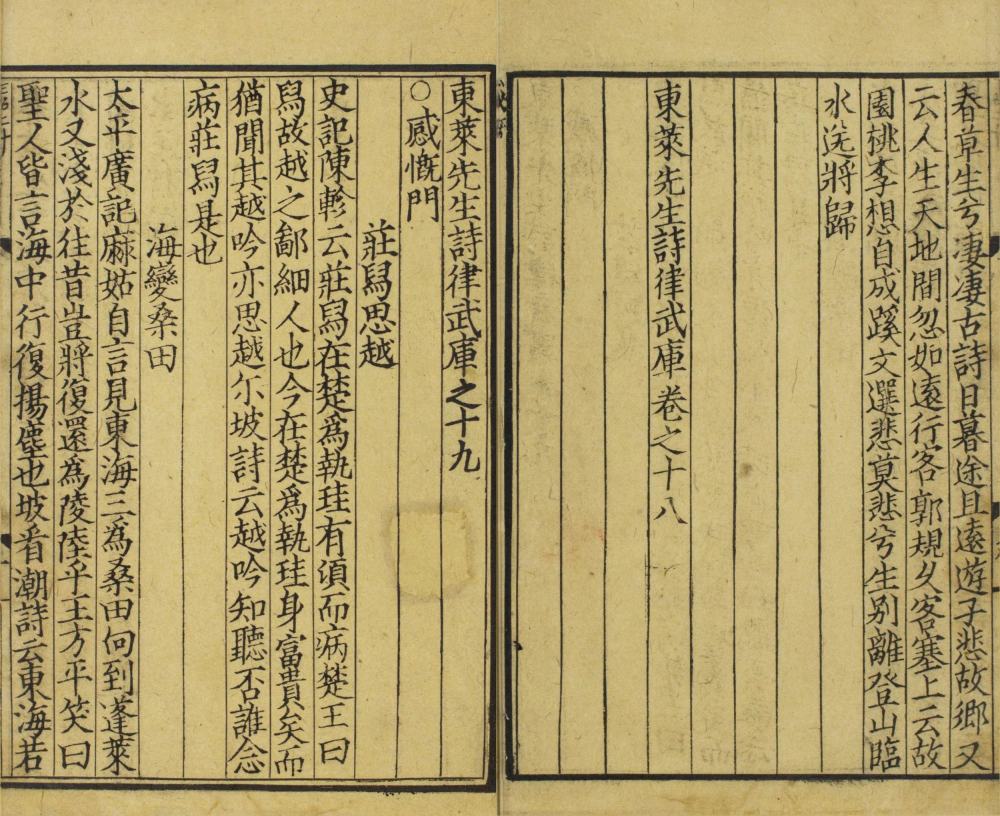 春草生兮凄凄古詩日暮途且遠遊子悲故鄉又
云人生天地間忽如遠行客郭規久客塞上云故
園桃李想自成蹊文選悲莫悲兮生别離登山臨
水送將歸
東萊先生詩律武庫卷之十八
東萊先生詩律武庫之十九
○感慨門
莊舄思越
史記陳軫云莊舄在楚為執珪有須而病楚王曰
舄故越之鄙細人也今在楚為執珪身富貴矣而
猶聞其越吟亦思越尓坡詩云越吟知聽否誰念
病莊舄是也
海變桑田
太平廣記麻姑自言見東海三為桑田向到蓬萊
水又淺於往昔豈將復還為陵陸乎王方平笑曰
聖人皆言海中行復揚塵也坡看潮詩云東海若